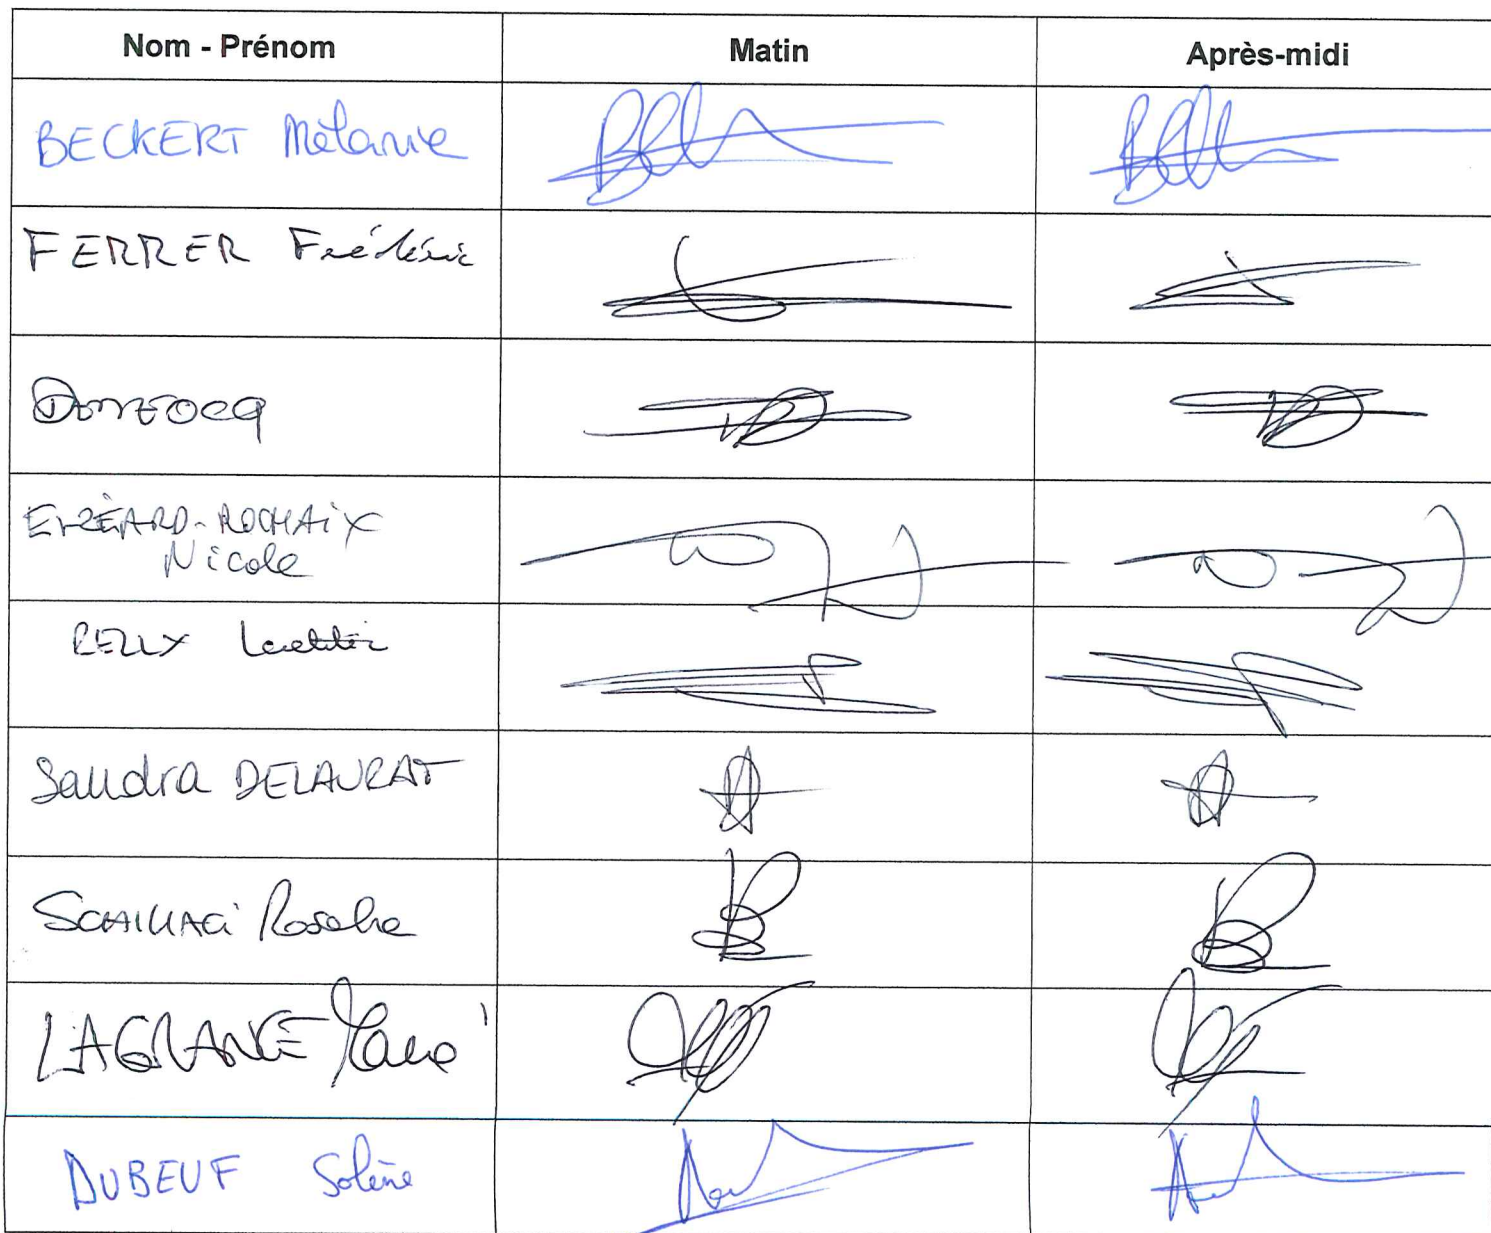 Nom - Prénom Matin Après-midi
BECKERT Mélanie
FERRER Frédéric
EVRÉARD-ROCHAIX
Nicole
RELLY Laetitia
Sandra DELAURAT
Rosalie
LAGRANGE
DUBEUF Solène